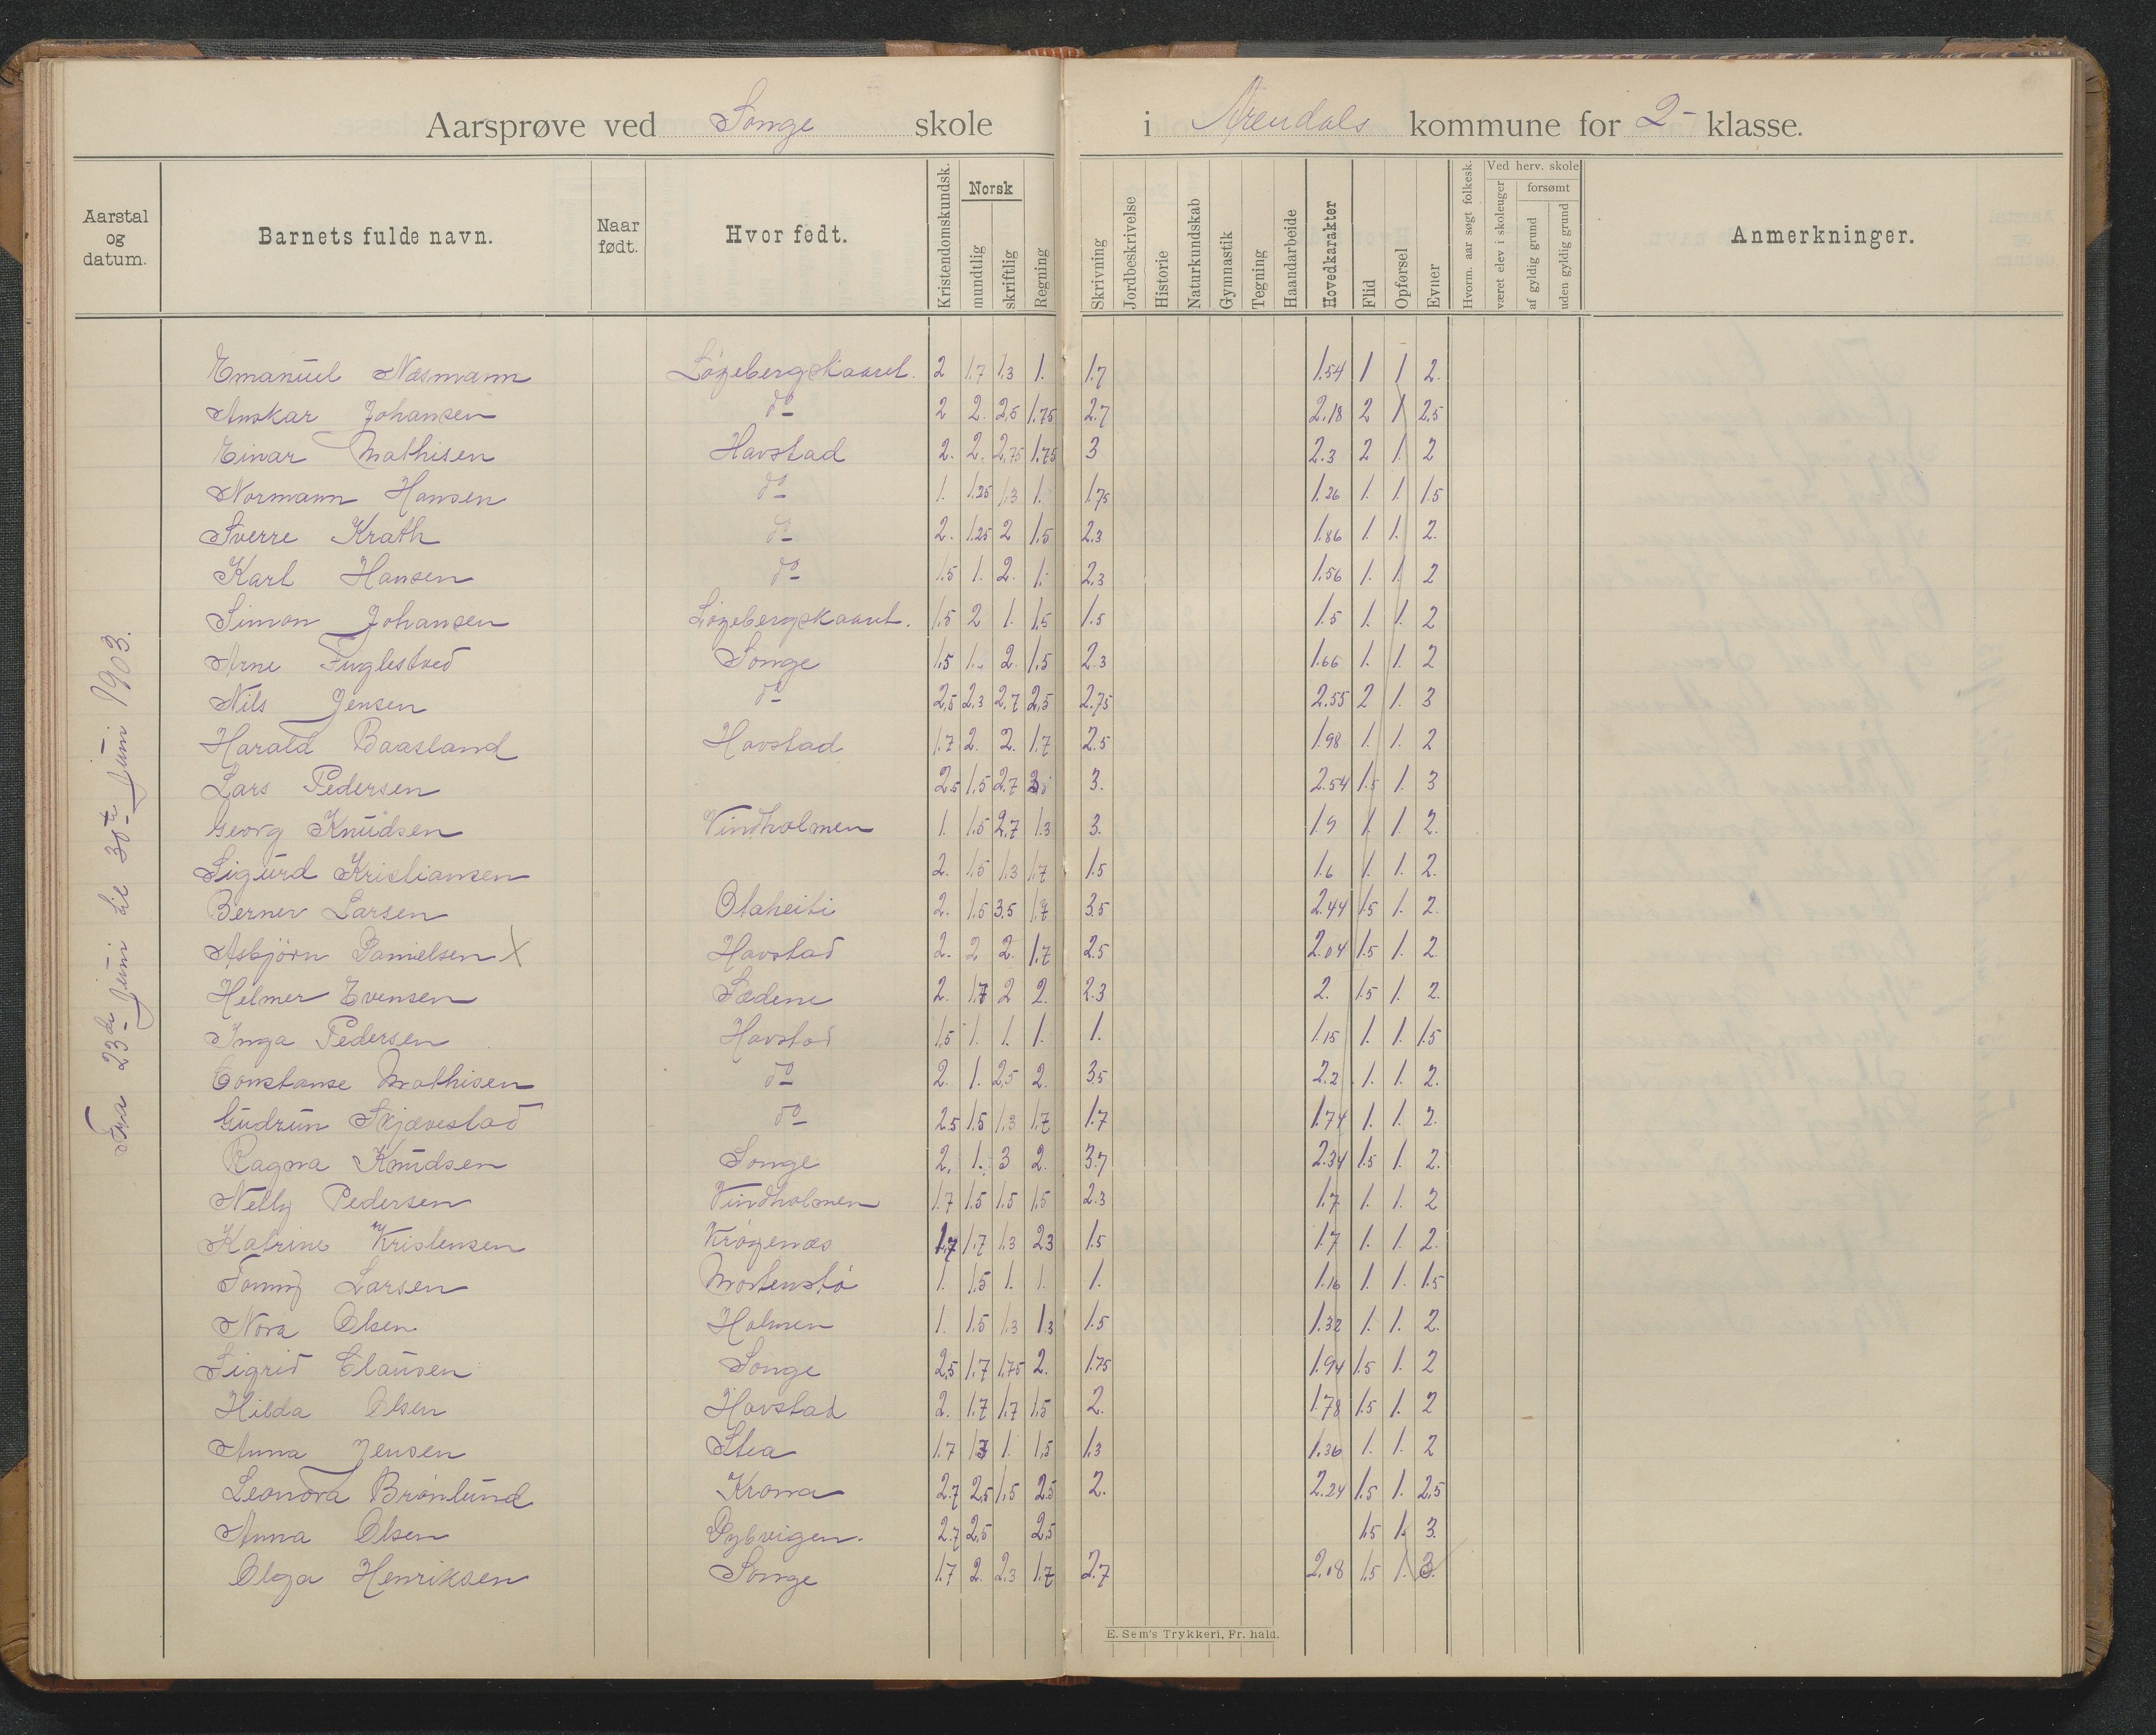 Aarsprøve ved Songe skole i Arendals kommune for 2- klasse.
Aarstal og datum. Barnets fulde navn. Naar født. Hvor født. Kristendomskundsk. Norsk mundtlig skriftlig Regning Skrivning Jordbeskrivelse Historie Naturkundskab Gymnastik Tegning Haandarbeide Hovedkarakter Flid Opførsel Evner Hvorm. aar søgt folkesk. Ved herv. skole været elev i skoleuger forsømt af gyldig grund uden gyldig grund Anmerkninger.
Fra 23de juni til 30te juni 1903.
Emanuel Næsmann Løgebergskaaret. 2 1.7 1.3 1. 1.7 1.54 1 1 2.
Anskar Johansen do 2 2. 2,5 1.75 2.7 2.18 2 1 2,5
Einar Mathisen Havstad 2. 2. 2,75 1.75 3 2.3 2 1. 2
Normann Hansen do 1. 1.25 1.3 1. 1.75 1.26 1. 1. 1.5
Sverre Krath do 2. 1.25 2 1.5 2.3 1.86 1. 1. 2.
Karl Hansen do 1.5 1. 2. 1. 2.3 1.56 1. 1. 2
Simon Johansen Løgebergskaaret. 1.5 2 1. 1.5 1.5 1.5 1. 1. 2
Arne Fuglestved Songe 1.5 1. 2. 1.5 2.3 1.66 1. 1. 2
Nils Jensen do 2,5 2.3 2,7 2,5 2.75 2.55 2 1. 3
Harald Baasland Havstad 1.7 2. 2. 1.7 2.5 1.98 1. 1. 2
Lars Pedersen 2.5 1.5 2.7 3 3. 2.54 1.5 1. 3
Georg Knudsen Vindholmen 1. 1.5 2,7 1.3 3. 1.9 1. 1. 2.
Sigurd Kristiansen 2. 1.5 1.3 1.7 1.5 1.6 1. 1. 2.
Berner Larsen Otaheiti 2. 1.5 3.5 1.7 3.5 2.44 1.5 1. 2.
Asbjörn Danielsen X Havstad 2. 2 2. 1.7 2.5 2.04 1.5 1. 2.
Helmer Evensen Sædene 2. 1.7 2 2. 2.3 2. 1.5 1. 2.
Inga Pedersen Havstad 1,5 1. 1. 1. 1. 1.15 1. 1. 1.5
Constanse Mathisen do 2. 1. 2,5 2. 3.5 2.2 1. 1. 2.
Gudrun Skjævestad do 2.5 1.5 1.3 1.7 1.7 1.74 1. 1. 2.
Ragna Knudsen Songe 2, 1. 3 2. 3.7 2.34 1.5 1. 2.
Nelly Pedersen Vindholmen 1.7 1.5 1.5 1.5 2.3 1.7 1. 1. 2
Katrine Kristensen Krøgenæs 1.7 1.7 1.3 2.3 1.5 1.7 1. 1. 2.
Tonny Larsen Mortenstø 1. 1.5 1. 1. 1. 1.16 1. 1. 1.5
Nora Olsen Holmen 1. 1.5 1.3 1.3 1.5 1.32 1. 1. 2.
Sigrid Clausen Songe 2,5 1.7 1.75 2. 1.75 1.94 1.5 1. 2
Hilda Olsen Havstad 2. 1.7 1.7 1.5 2. 1.78 1.5 1. 2
Anna Jensen Stea 1.7 1.3 1. 1,5 1.3 1.36 1. 1. 2
Leonora Brønlund Krona 2.7 2,5 1.5 2.5 2. 2.24 1.5 1. 2,5
Anna Olsen Dybvigen. 2.7 2,5 2.5 1.5 1. 3.
Olga Henriksen Songe 1.7 2. 2.3 1.7 2.7 2.08 1.5 1. 3.
E. Sem's Trykkeri, Fr. hald.